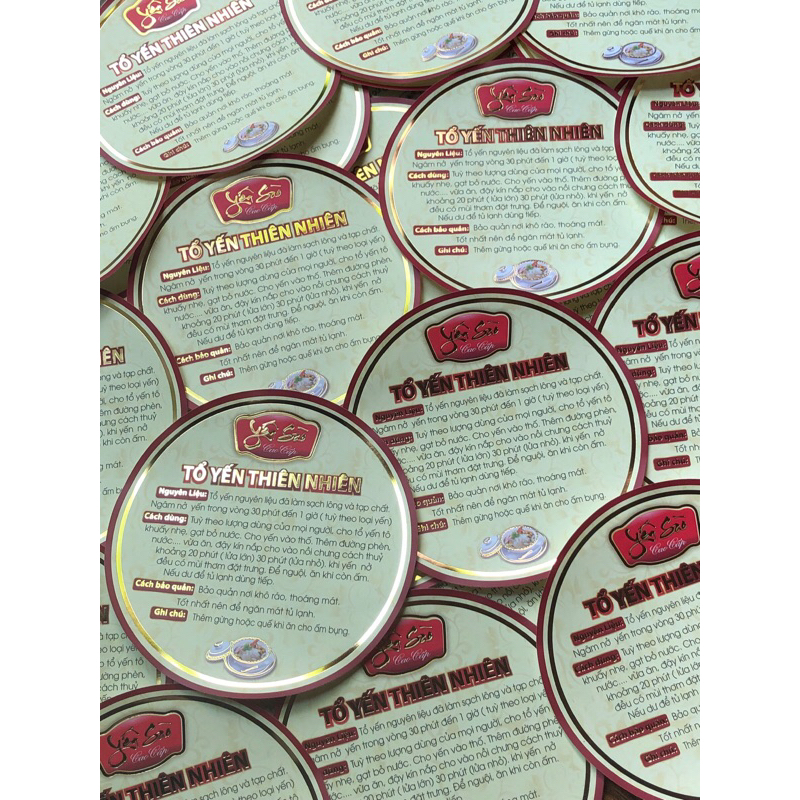 Yến Sào
Cao Cấp
TỔ YẾN THIÊN NHIÊN
Nguyên Liệu: Tổ yến nguyên liệu đã làm sạch lông và tạp chất.
Ngâm nở yến trong vòng 30 phút đến 1 giờ ( tuỳ theo loại yến)
Cách dùng: Tuỳ theo lượng dùng của mọi người, cho tổ yến tô
khuấy nhẹ, gạt bỏ nước. Cho yến vào thố. Thêm đường phèn,
nước.... vừa ăn, đậy kín nắp cho vào nồi chưng cách thuỷ
khoảng 20 phút ( lửa lớn) 30 phút (lửa nhỏ), khi yến nở
đều có mùi thơm đặt trưng. Để nguội, ăn khi còn ấm.
Nếu dư để tủ lạnh dùng tiếp.
Cách bảo quản: Bảo quản nơi khô ráo, thoáng mát.
Tốt nhất nên để ngăn mát tủ lạnh.
Ghi chú: Thêm gừng hoặc quế khi ăn cho ấm bụng.